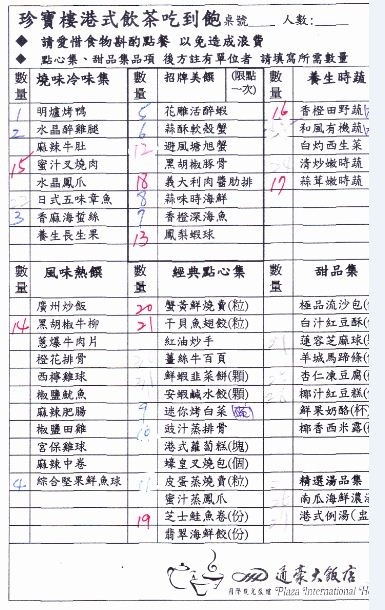 珍寶樓港式飲茶吃到飽 桌號 人數:
◆ 請愛惜食物斟酌點餐 以免造成浪費
◆ 點心集、甜品集品項 後方註有單位者 請填寫所需數量
數量 燒味冷味集 數量 招牌美饌 (限點一次) 數量 養生時蔬
1 明爐烤鴨 5 花雕活醉蝦 16 香橙田野蔬
2 水晶醉雞腿 6 蒜酥軟殼蟹 和風有機蔬
麻辣牛肚 12 避風塘旭蟹 白灼西生菜
15 蜜汁叉燒肉 黑胡椒豚骨 清炒嫩時蔬
水晶鳳爪 18 義大利肉醬肋排 17 蒜茸嫩時蔬
日式五味章魚 8 蒜味時海鮮
3 香麻海蜇絲 7 香橙深海魚
養生長生果 13 鳳梨蝦球
數量 風味熱饌 數量 經典點心集 數量 甜品集
廣州炒飯 20 蟹黃鮮燒賣(粒) 極品流沙包
14 黑胡椒牛柳 21 干貝魚翅餃(粒) 白汁紅豆酥
蔥爆牛肉片 紅油炒手 蓮容芝麻球
橙花排骨 薑絲牛百頁 羊城馬蹄條
西檸雞球 鮮蝦韭菜餅(顆) 杏仁凍豆腐
椒鹽魷魚 安蝦鹹水餃(顆) 椰汁紅豆糕
麻辣肥腸 9 迷你烤白菜 鮮果奶酪(杯)
椒鹽田雞 10 豉汁蒸排骨 椰香西米露
宮保雞球 港式蘿蔔糕(塊)
麻辣中卷 蠔皇叉燒包(個)
4 綜合堅果鮮魚球 11 皮蛋蒸燒賣(粒) 精選湯品集
蜜汁蒸鳳爪 南瓜海鮮濃
19 芝士鮭魚卷(份) 港式例湯
翡翠海鮮餃(份)
通豪大飯店
Plaza International